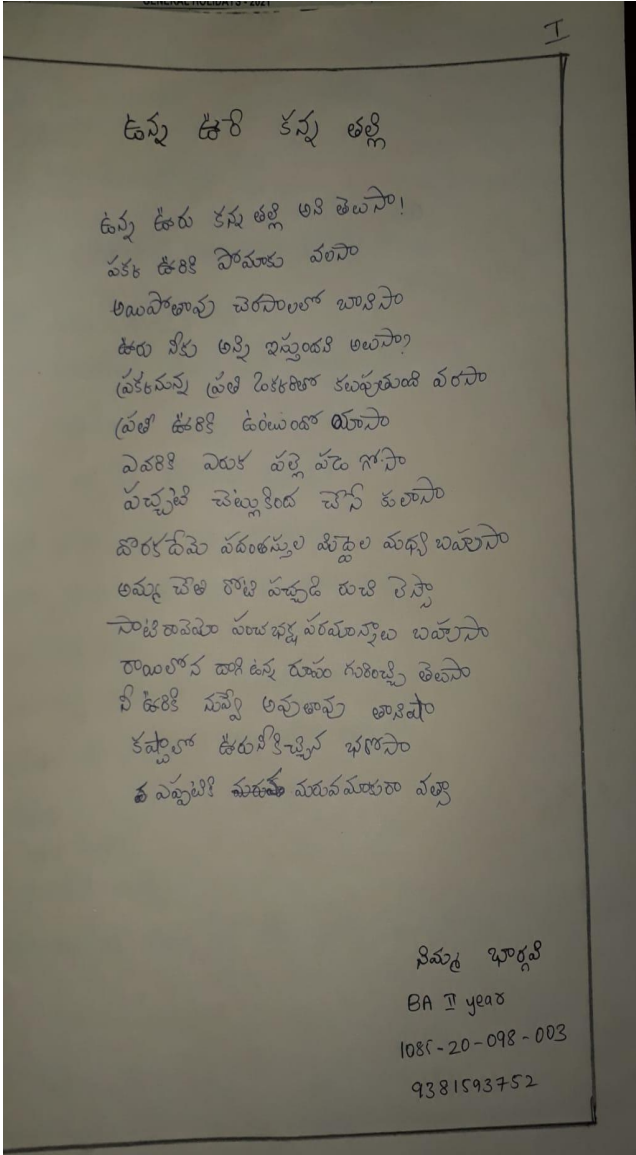 GENERAL HOLIDAYS - 2021
I
ఉన్న ఊరే కన్న తల్లి
ఉన్న ఊరు కన్న తల్లి అని తెలుసా!
పక్క ఊరికి పోమాకు వలసా
అయిపోతావు చెరసాలలో బానిసా
ఊరు నీకు అన్ని ఇస్తుందని అలుసా?
ప్రక్కనున్న ప్రతి ఒక్కరితో కలుపుతుంది వరసా
ప్రతి ఊరికి ఉంటుందో యాసా
ఎవరికి ఎరుక పల్లె పడె గోసా
పచ్చటి చెట్లుకింద చేసే కులాసా
దొరకదేమె పదంతస్తుల మిద్దెల మధ్య బహుసా
అమ్మ చేతి రోటి పచ్చడి రుచి లెస్సా
సాటి రావెమో పంచ భక్ష పరమాన్నాలు బహుసా
రాయిలోన దాగి ఉన్న రూపం గురించ్చి తెలుసా
నీ ఊరికి నువ్వే అవుతావు తానిషా
కష్టాలో ఊరునీకిచ్చిన భరోసా
ఎప్పటికి మరువమాకురా వత్సా
నిమ్మ భార్గవి
BA II year
1085-20-098-003
9381593752